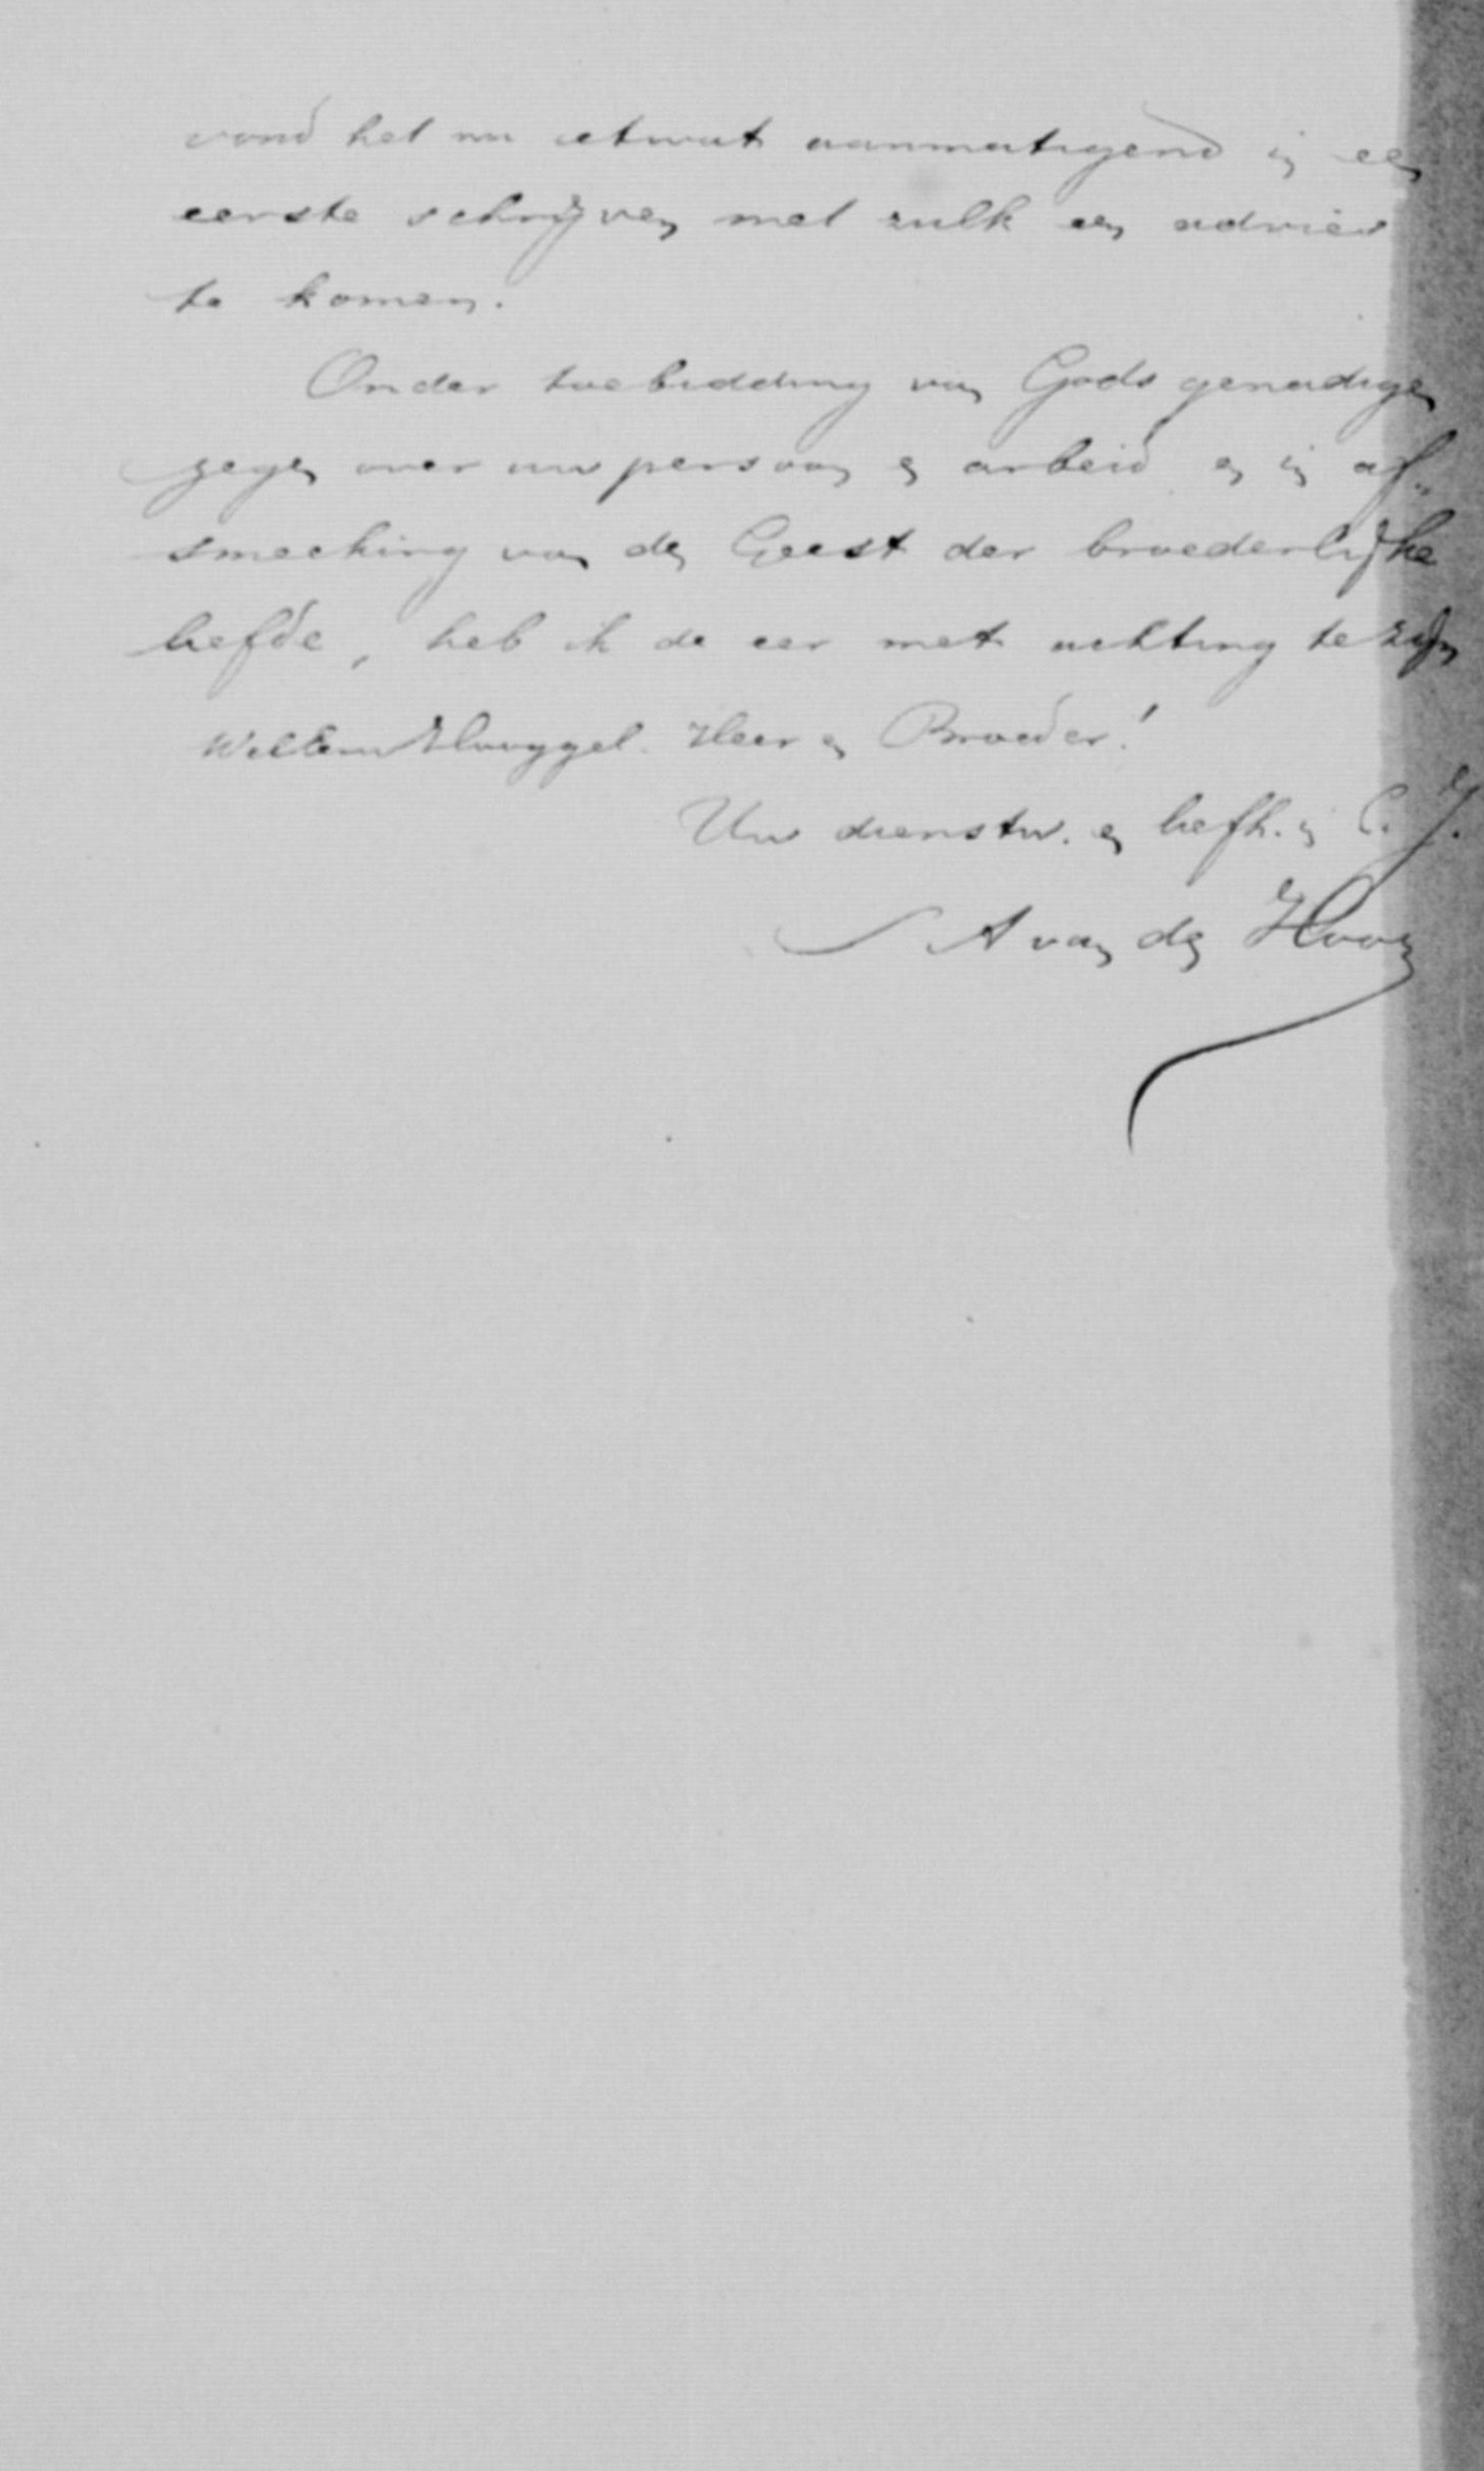 vond het nu ietwat aanmatigend in een
eerste schrijven met zulk een advies
te komen.
Onder toebidding van Gods genadigen
zegen over uw persoon en arbeid en in af-
smeeking van den Geest der broederlijke
liefde, heb ik de eer met achting te zijn
WelEerw Hooggel. Heer en Broeder!
Uw dienstw. en liefh. in C. J.
A van den Hoorn